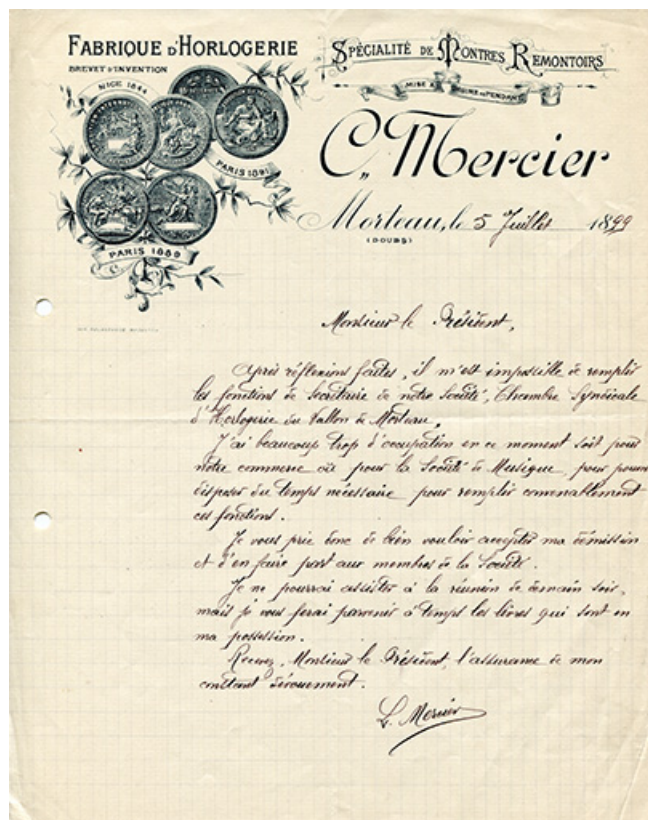 FABRIQUE D'HORLOGERIE
BREVET D'INVENTION
NICE 1844
PARIS 1891
PARIS 1889
SPÉCIALITÉ DE MONTRES REMONTOIRS
MISE À
C. Mercier
Morteau, le 5 Juillet 1899
(DOUBS)
Monsieur le Président,
Après réflexions faites, il m'est impossible de remplir
les fonctions de Secrétaire de notre Société, Chambre Syndicale
d'Horlogerie du Vallon de Morteau,
J'ai beaucoup trop d'occupation en ce moment soit pour
notre commerce où pour la Société de Musique, pour pouvoir
disposer du temps nécessaire pour remplir convenablement
ces fonctions.
Je vous prie donc de bien vouloir accepter ma démission
et d'en faire part aux membres de la Société.
Je ne pourrai assister à la réunion de demain soir,
mais je vous ferai parvenir à temps les livres qui sont en
ma possession.
Recevez, Monsieur le Président, l'assurance de mon
constant dévouement.
Mercier